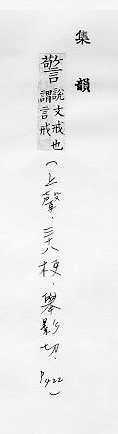 集韻
警說文戒也
謂言戒
(上聲．三十八梗．舉影切．P422)